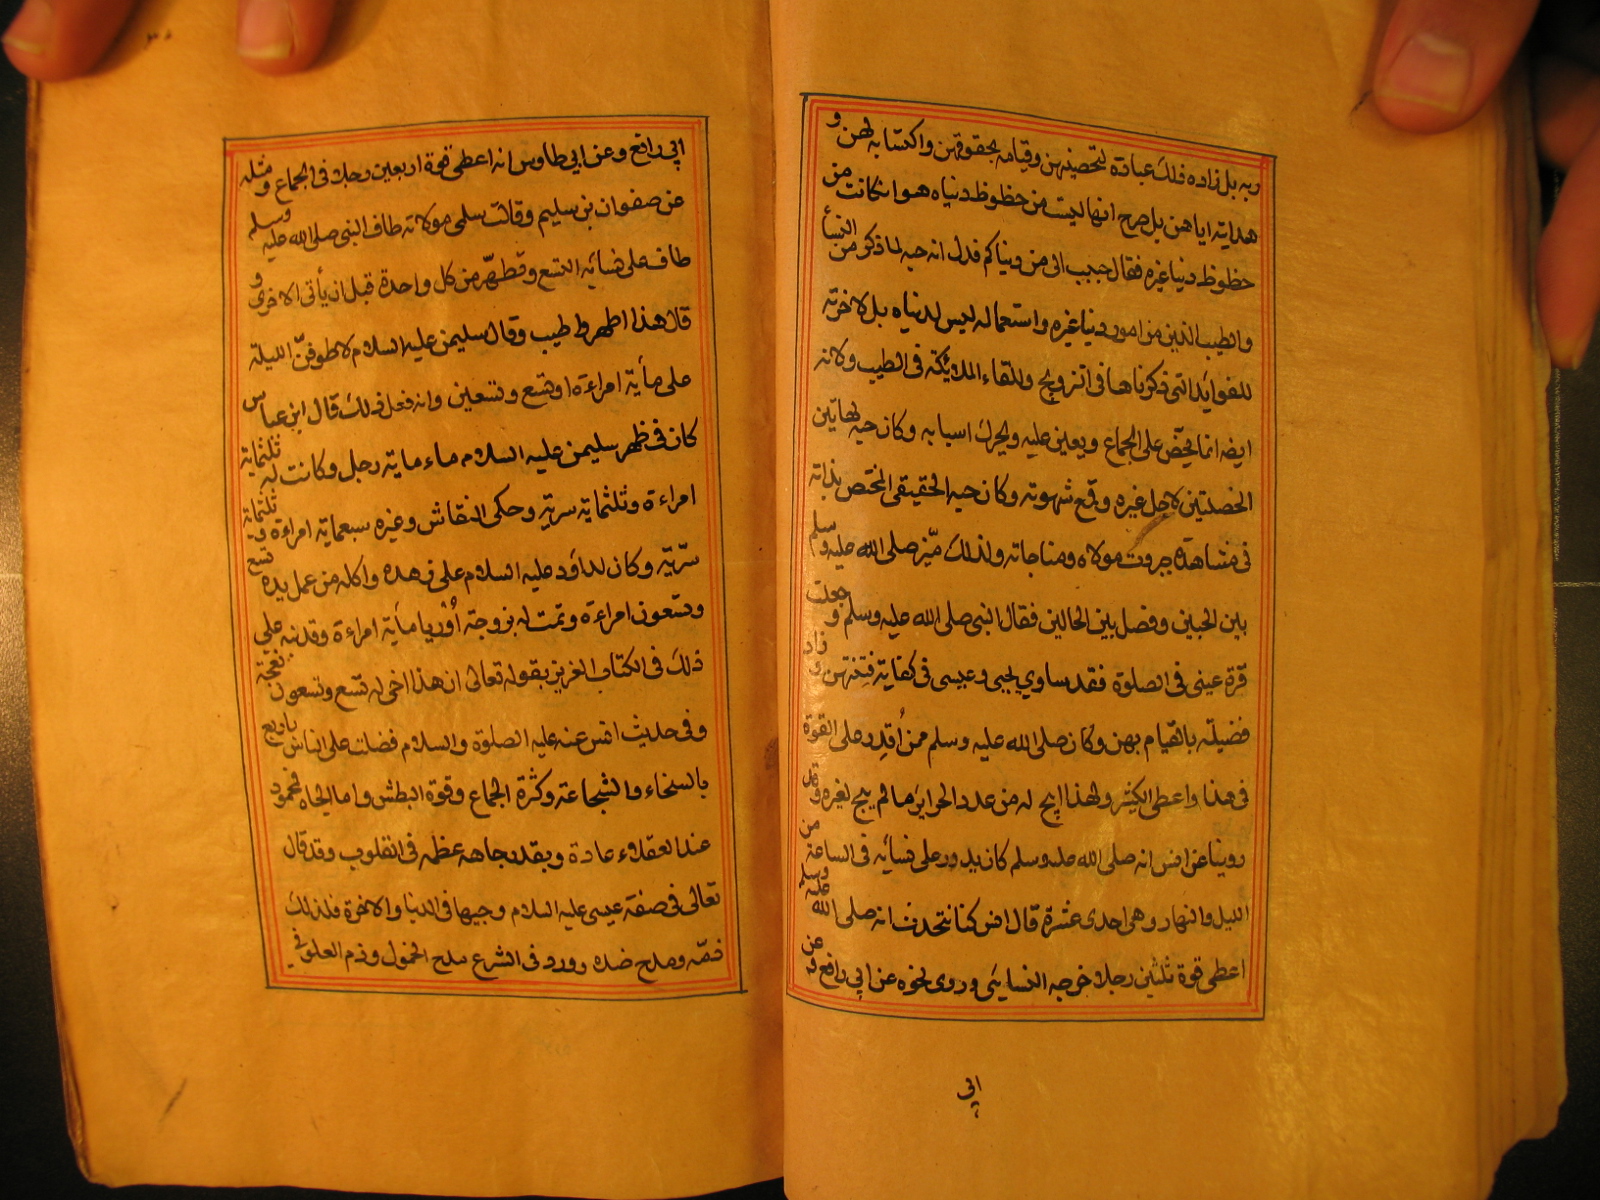 ربه بل زاده ذلك عبادة لتحصينهن وقيامه بحقوقهن واكتسابه لهن و
هدايته اياهن بل صرح انها ليست من حظوظ دنياه هو وانكانت من
حظوظ دنيا غيره فقال حبب الى من دنياكم فدل انه حبه لما ذكر من النسأ
والطيب الذين من امور دنيا غيره واستعماله ليس لدنياه بل لاخرته
للفوايد التى ذكرناها فى التزويج وللقاء الملائكة فى الطيب ولانه
ايضا مما يحض على الجماع ويعين عليه ويحرك اسبابه وكان حبه لهاتين
الخصلتين لاجل غيره وقمع شهوته وكان حبه الحقيقى المختص بذاته
فى مشاهدة جبروت مولاه ومناجاته ولذلك ميّز صلى الله عليه وسلم
بين الحبين وفصل بين الحالين فقال النبى صلى الله عليه وسلم وجعلت
قرة عينى فى الصلوة فقد ساوي يحيى وعيسى فى كفاية فتنتهن وزاد
فضيلته بالقيام بهن وكان صلى الله عليه وسلم ممن اُقدِر على القوة
فى هذا واعطى الكثير ولهذا ابيح له من عدد الحراير ما لم يبح لغيره وقد
روينا عن انس انه صلى الله عليه وسلم كان يدور على نسائه فى الساعة من
الليل والنهار وهى احدى عشرة قال انس كنا نتحدث انه صلى الله عليه وسلم
اعطى قوة ثلثين رجلا خرجه النسايئى وروى نحوه عن ابي رافع وعن
ابى
ابي رافع وعن ابي طاوس انه اعطى قوة اربعين رجلا فى الجماع ومثله
عن صفوان بن سليم وقالت سلمى مولاته طاف النبى صلى الله عليه وسلم
طاف على نسائه التسع وتطهّر من كل واحدة قبل ان يأتى الاخرى و
قال هذا اطهر واطيب وقال سليمن عليه السلام لاطوفنّ الليلة
على مأية امراءة او تسع وتسعين وانه فعل ذلك قال ابن عباس
كان فى ظهر سليمن عليه السلام ماء ماية رجل وكانت له ثلثماية
امراءة وثلثماية سرية وحكى النقاش وغيره سبعماية امراءة وثلثماية
سرّية وكان لداود عليه السلام على زهده واكله من عمل يده تسع
وتسعون امراءة وتمت له بزوجة اُوريا مأية امراءة وقد نبه على
ذلك فى الكتاب العزيز بقوله تعالى ان هذا اخى له تسع وتسعون نعجة
وفى حديث انس عنه عليه الصلوة والسلام فضلت على الناس باربع
بالسخاء والشجاعة وكثرة الجماع وقوة البطش واما الجاه فمحمود
عند العقلاء عادة وبقدر جاهه عظمه فى القلوب وقد قال
تعالى فى صفة عيسى عليه السلام وجيها فى الدنيا والاخرة فلذلك
ذمّه ومدح ضده وورد فى الشرع مدح الخمول وذم العلو فى